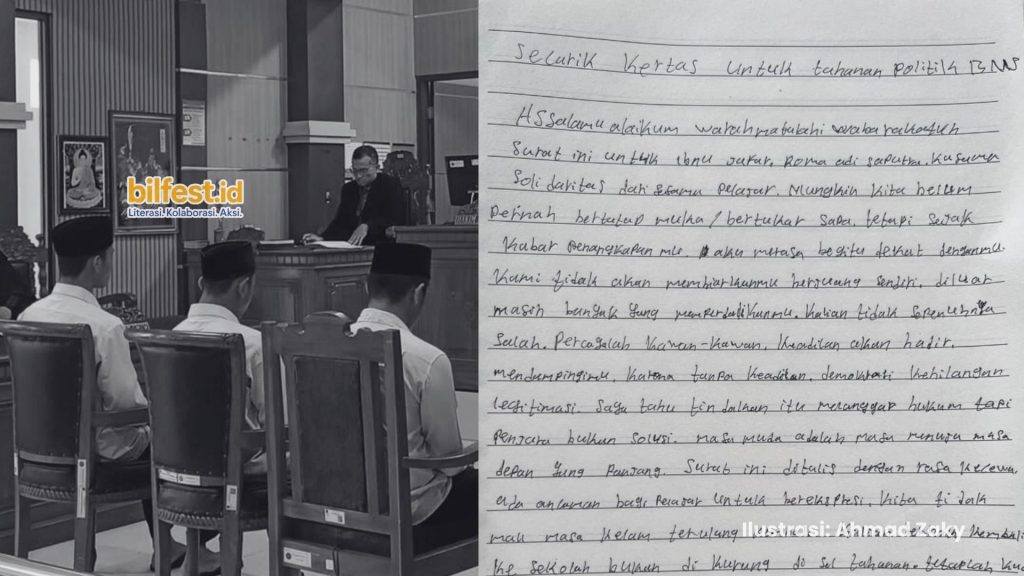 bilfest.id
Literasi. Kolaborasi. Aksi.
Selarik Kertas untuk tahanan politik BMS
Assalamu alaikum warahmatulahi wabarakatuh
Surat ini untuk ibnu jafar, Roma adi saputra, Kusuma
Solidaritas dari sesama Pelajar. Mungkin kita belum
pernah bertatap muka/bertukar sapa, tetapi sejak
Kabar penangkapan mu, aku merasa begitu dekat denganmu.
Kami tidak akan membiarkanmu berjuang sendiri, diluar
masih banyak yang memperdulikanmu. Kalian tidak sepenuhnya
Salah. Percayalah kawan-kawan, Keadilan akan hadir,
mendampingimu. karena tanpa Keadilan, demokrasi kehilangan
legitimasi. Saya tahu tindakan itu melanggar hukum tapi
Penjara bukan solusi. masa muda adalah masa menuju masa
depan yang panjang. Surat ini ditulis dengan rasa kecewa,
ada ancaman bagi Pelajar untuk berekspresi, kita tidak
mau masa kelam terulang kembali
Ke sekolah bukan di kurung di sel tahanan. tetaplah
Ilustrasi: Ahmad Zaky